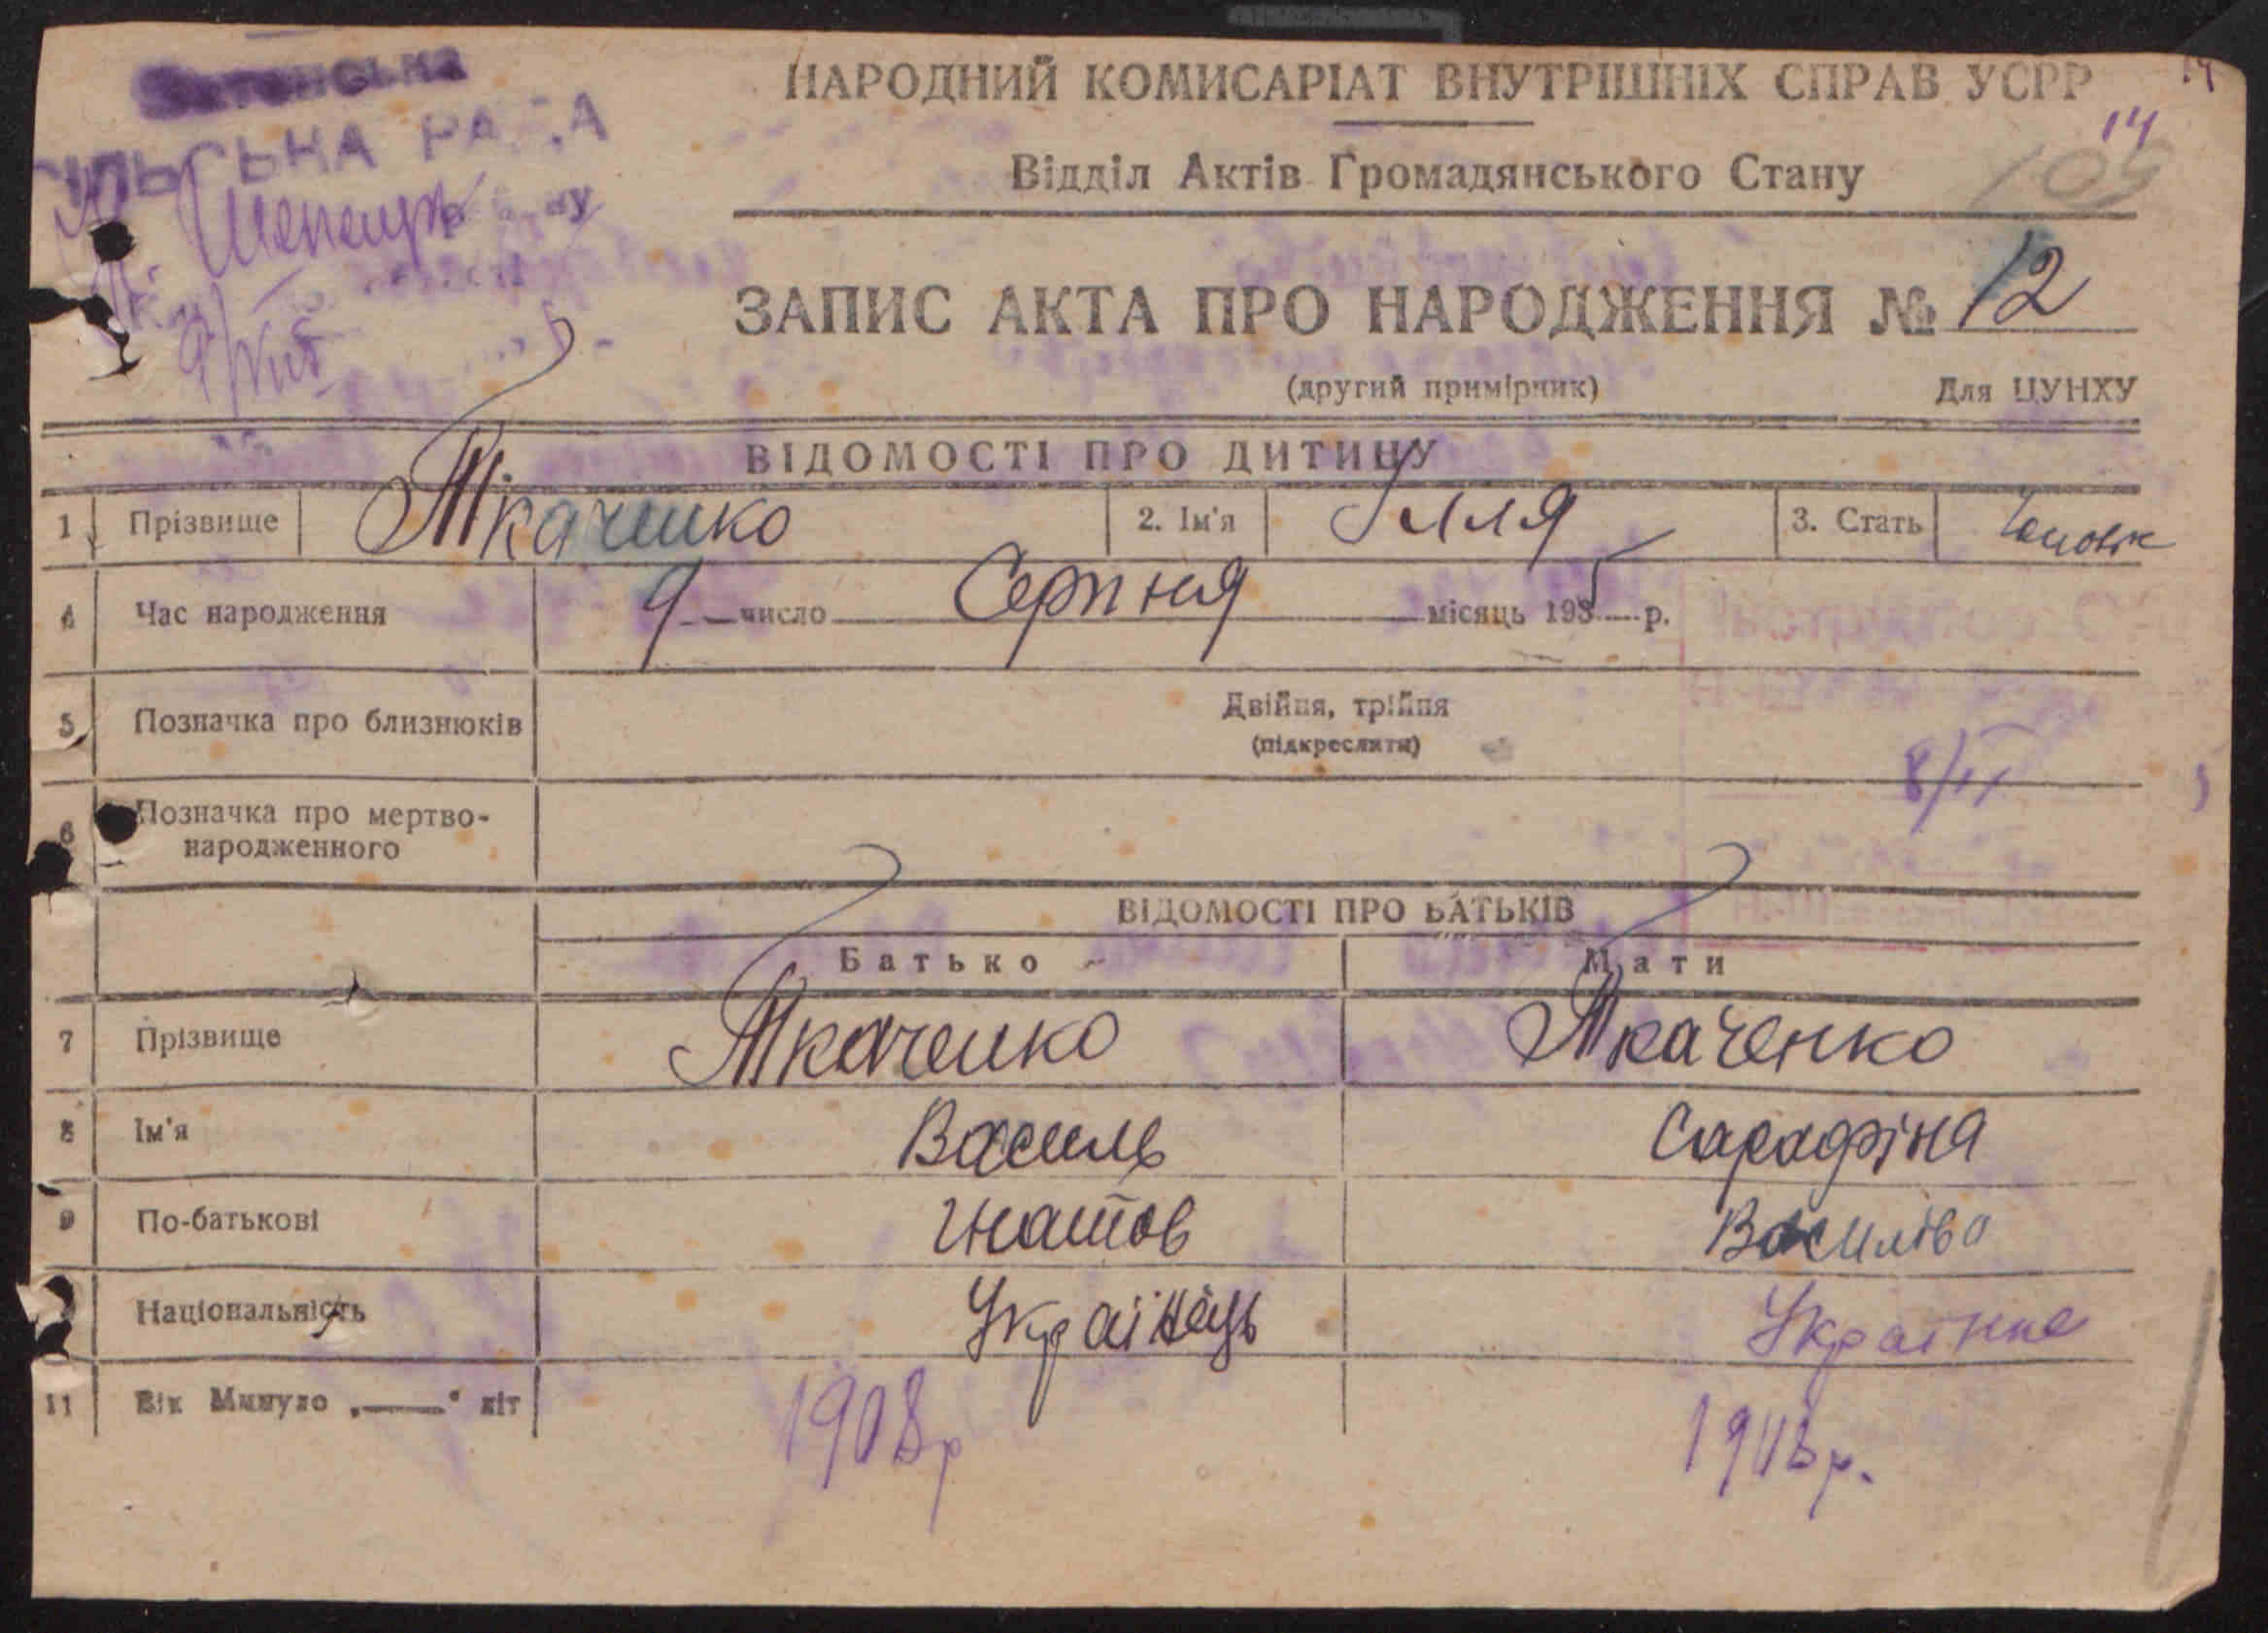 СІЛЬСЬКА РАДА
НАРОДНИЙ КОМИСАРІАТ ВНУТРІШНІХ СПРАВ УСРР
14
105
Відділ Актів Громадянського Стану
ЗАПИС АКТА ПРО НАРОДЖЕННЯ № 12
(другий примірник) Для ЦУНХУ
ВІДОМОСТІ ПРО ДИТИНУ
1 Прізвище Ткаченко 2. Ім'я Ілля 3. Стать Чоловік
4 Час народження 9 число Серпня місяць 1935 р.
5 Позначка про близнюків Двійня, трійня
(підкреслити)
8/II
6 Позначка про мертво-
народженного
ВІДОМОСТІ ПРО БАТЬКІВ
Батько Мати
7 Прізвище Ткаченко Ткаченко
8 Ім'я Василь Сарафіна
9 По-батькові Гнатов Василіва
Національність Українець Українка
11 Вік Минуло „——“ літ 1908р 1913р.